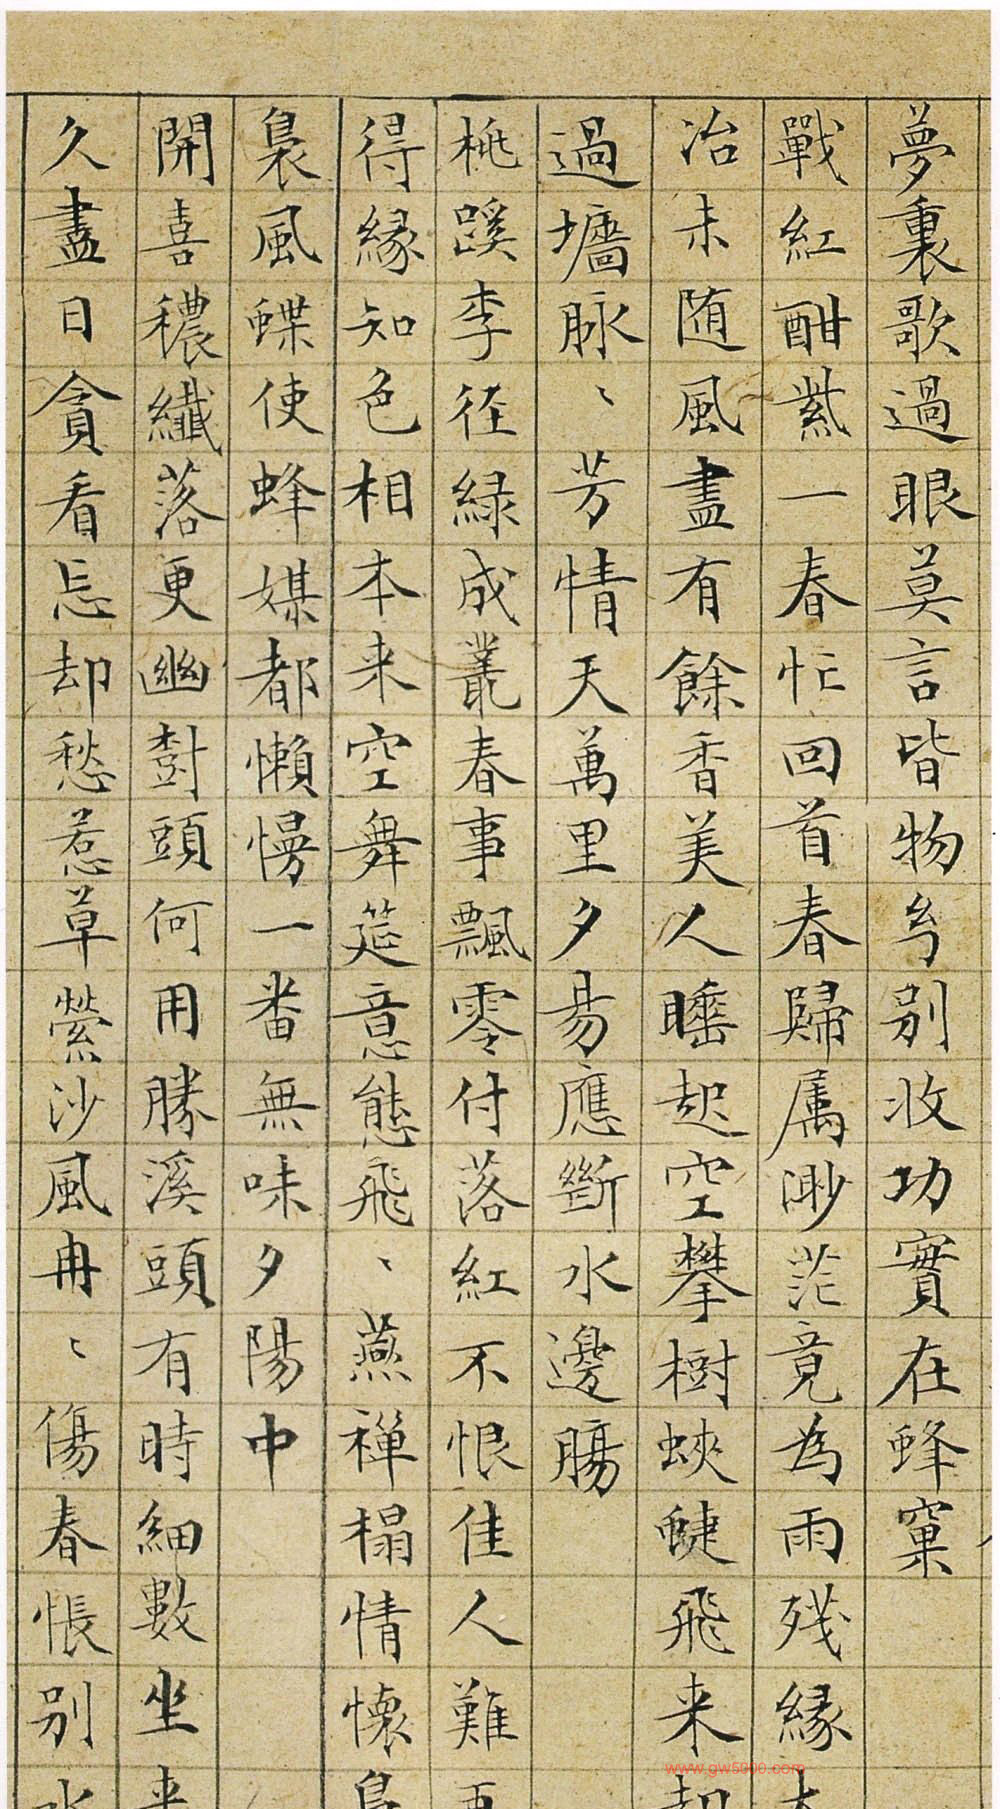 夢裏歌過眼莫言皆物兮別收功實在蜂窠
戰紅酣紫一春忙回首春歸屬渺茫竟為雨殘緣太
冶未随風盡有餘香美人睡起空攀樹蛺蜨飛来却
過墻脉、芳情天萬里夕昜應斷水邊膓
桃蹊李徑緑成叢春事飄零付落紅不恨佳人難再
得緣知色相本来空舞筵意態飛、燕禪榻情懷裊
裊風蝶使蜂媒都懶慢一番無味夕陽中
開喜穠纖落更幽樹頭何用勝溪頭有時細數坐来
久盡日貪看忘却愁惹草縈沙風冉、傷春悵别水
www.gw5000.com